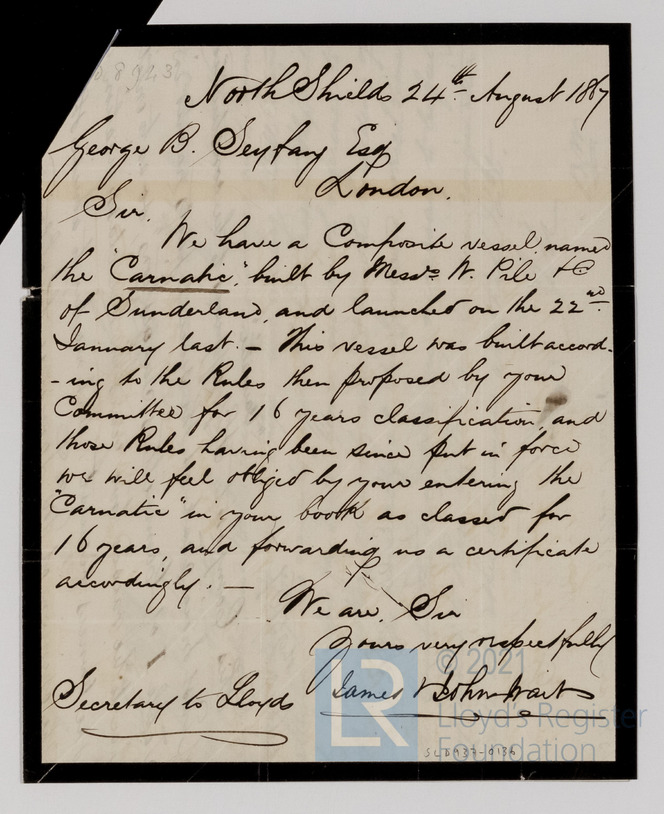 North Shields 24th August 1867
George B. Seyfang Esq
London.
Sir,
We have a Composite vessel, named
the "Carnatic", built by Messrs W. Pile & Co
of Sunderland, and launched on the 22nd
January last. – This vessel was built accord-
-ing to the Rules then proposed by your
Committee for 16 years classification, and
those Rules having been since put in force
we will feel obliged by your entering the
"Carnatic" in your book as classed for
16 years, and forwarding us a certificate
accordingly. —
We are, Sir
Yours very respectfully
James & John Wait
Secretary to Lloyds
LR
© 2021
Lloyd's Register
Foundation
SLD937-0136